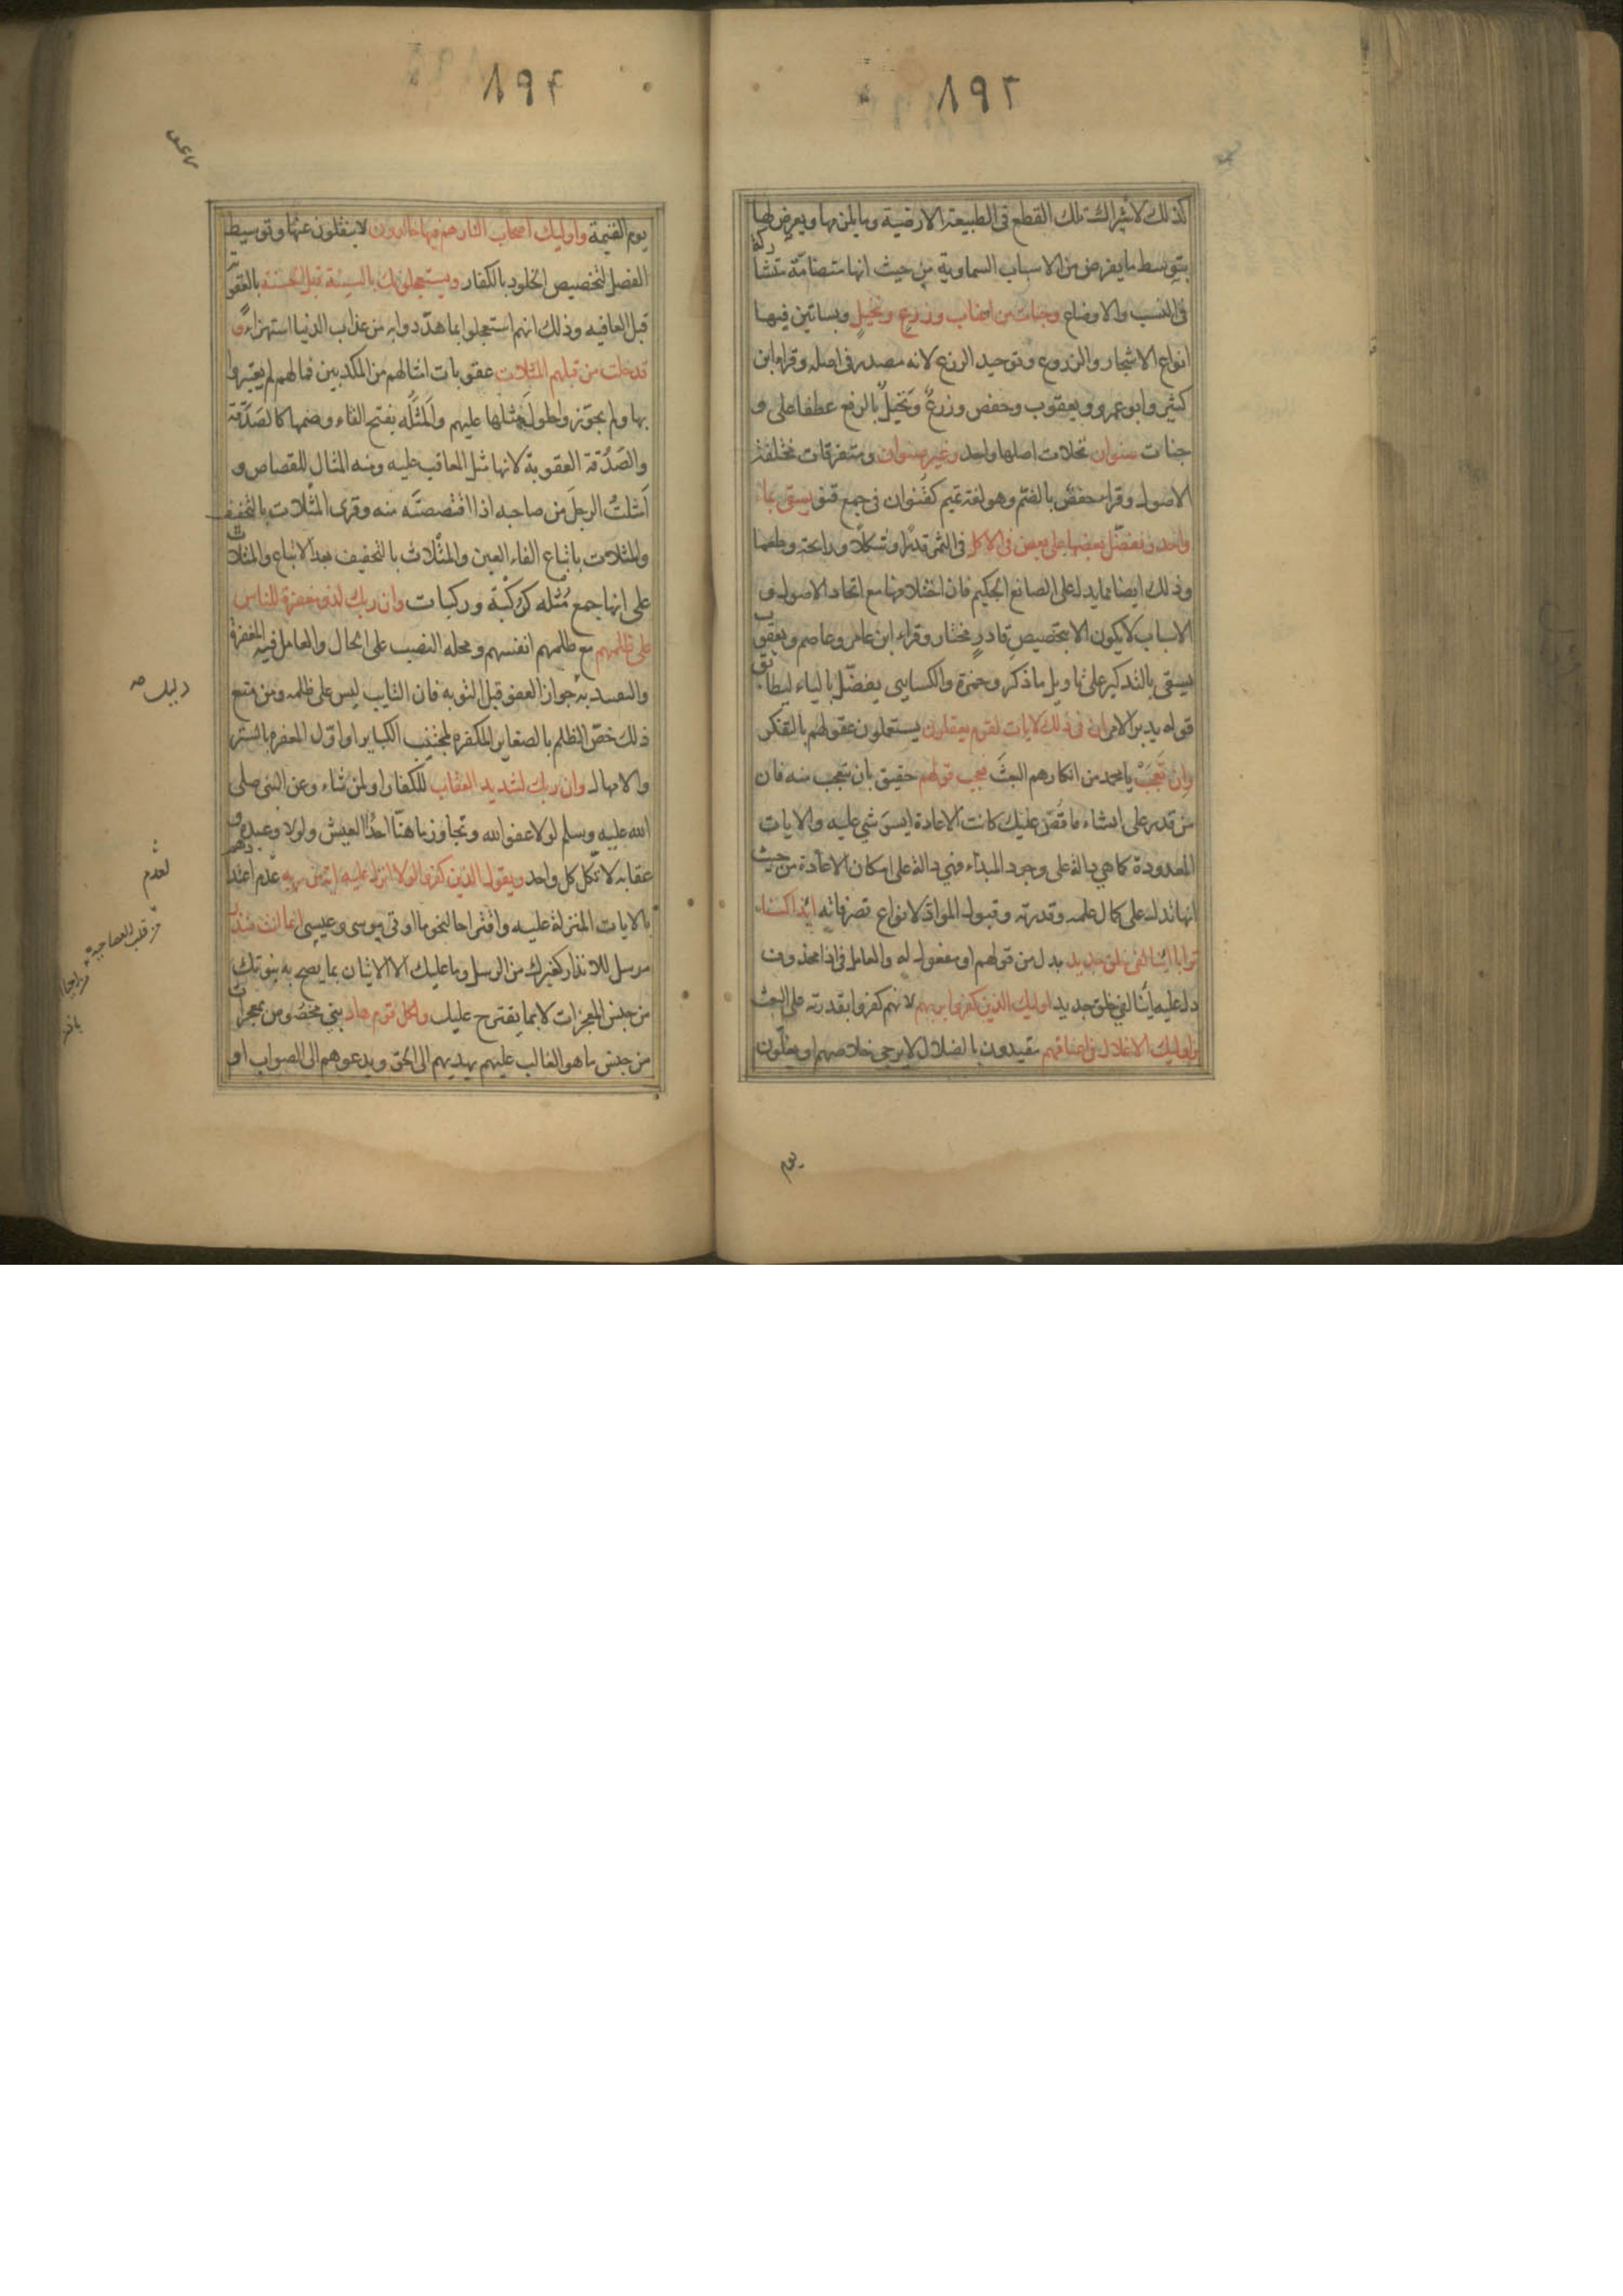 ١٩٢
كذلك لاشتراك تلك القطع فى الطبيعة الارضية وما يلزمها ويعرض لها
بتوسط ما يفرض من الاسباب السماوية من حيث انها متضامّة متشاركة
فى النسب والاوضاع وجنات من اعناب وزرع ونخيل وبساتين فيها
انواع الاشجار والزروع وتوحيد الزرع لانه مصدر فى اصله وقرا ابن
كثير وابو عمرو ويعقوب وحفص وزرعٌ ونخيلٌ بالرفع عطفا على و
جنات صنوان نخلات اصلها واحد وغير صنوان ومتفرقات مختلفة
الاصول وقرا حفص بالضم وهو لغة تميم كقنوان فى جمع قنو يسقى بماء
واحد ونفضّل بعضها على بعض فى الاكل فى الثمر قدرًا وشكلًا ورايحة وطعما
وذلك ايضا مما يدل على الصانع الحكيم فان اختلافها مع اتحاد الاصول و
الاسباب لا يكون الا بتخصيص قادرٍ مختار وقراء ابن عامر وعاصم ويعقوب
يسقى بالتذكير على تاويل ما ذكر وحمزة والكسايى يفضّل بالياء ليطابق
قوله يدبر الامر ان فى ذلك لايات لقوم يعقلون يستعملون عقولهم بالتفكر
وان تعجبْ يا محمد من انكارهم البعثَ فعجب قولهم حقيق بان تتعجب منه فان
من قدر على انشاء ما قُصّ عليك كانت الاعادة ايسر شي عليه والايات
المعدودة كما هي دالة على وجود المبداء فهي دالة على امكان الاعادة من حيث
انها تدل على كمال علمه وقدرته وقبول المواد لانواع تصرفاته ائذا كنا
ترابا ائنا لفى خلق جديد بدل من قولهم او مفعول له والعامل فى اذا محذوف
دل عليه أئنا لفى خلق جديد اوليك الذين كفروا بربهم لانهم كفروا بقدرته على البعث
واوليك الاغلال فى اعناقهم مقيدون بالضلال لا يرجى خلاصهم او يغلّون
يوم
١٩٣
يوم القيمة واوليك اصحاب النار هم فيها خالدون لا ينفكون عنها وتوسيط
الفصل لتخصيص الخلود بالكفار ويستعجلونك بالسيئة قبل الحسنة بالعقوبة
قبل العافيه وذلك انهم استعجلوا بما هدّدوا به من عذاب الدنيا استهزاءً و
قد خلت من قبلهم المثلات عقوبات امثالهم من المكذبين فما لهم لم يعتبروا
بها ولم يجوّزوا حلول مثلها عليهم والمَثلَه بفتح الثاء وضمها كالصَدَقة
والصَدُقة العقوبة لانها مثل المعاقب عليه ومنه المثال للقصاص و
اَمثلتُ الرجلَ من صاحبه اذا اقتصصتَه منه وقرى المثْلات بالتخفيف
والمثلات باتباع الفاء العين والمثْلات بالتخفيف بعد الاتباع والمثلات
على انها جمع مُثْله كركْبة وركبات وان ربك لذو مغفرة للناس
على ظلمهم مع ظلمهم انفسهم ومحله النصب على الحال والعامل فيه المغفرة
والتقييد به جواز العفو قبل التوبه فان التايب ليس على ظلمه ومن منع
دليل صه
ذلك خصّ الظلم بالصغاير المكفره لمجتنب الكباير او اوّل المغفره بالستر
والامهال وان ربك لشديد العقاب للكفار او لمن شاء وعن النبى صلى
الله عليه وسلم لولا عفو الله وتجاوزه ما هنّا احدٌ العيش ولولا وعيده و
عقابه لاتّكل كل واحد ويقول الذين كفروا لولا انزل عليه اية من ربه عدم اعتدادهم
لعدم
بالايات المنزلة عليه واقتراحا لنحو ما اوتى موسى وعيسى انما انت منذر
من قلب العصا حية
مرسل للانذار كغيرك من الرسل وما عليك الا الاتيان بما يصح به نبوتك
من جنس المعجزات لا بما يقترح عليك ولكل قوم هاد نبي مخصوص بمعجزات
من جنس ما هو الغالب عليهم يهديهم الى الحق ويدعوهم الى الصواب او